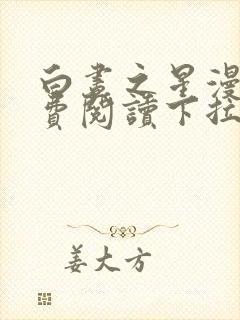 白晝之星漫
費閱讀下拉
姜大方